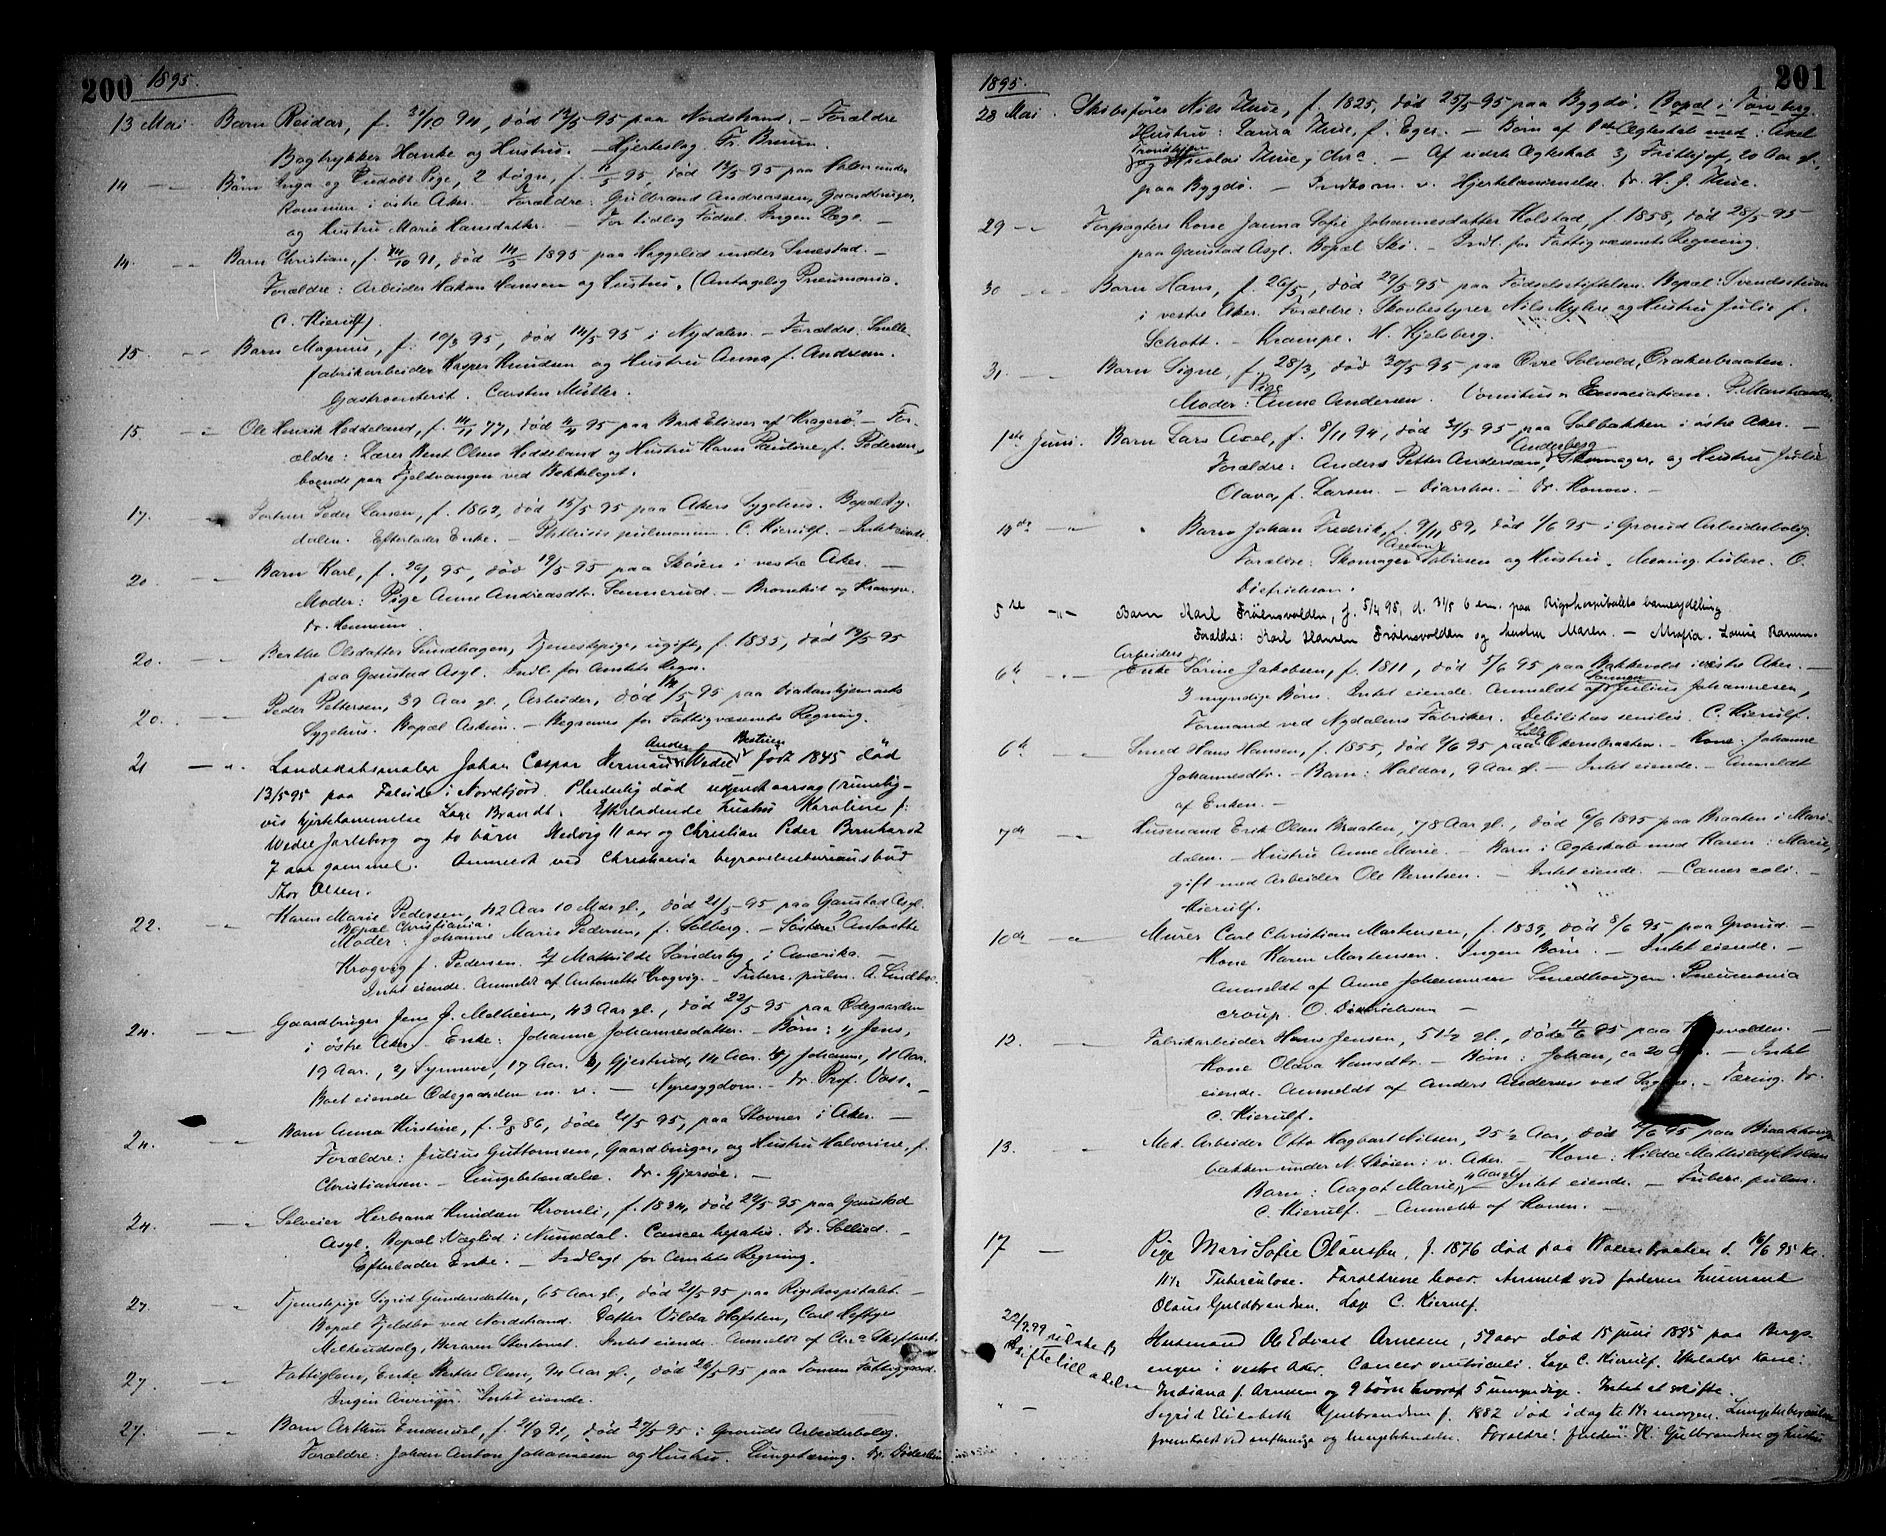 200 1895.
13 Mai Barn Reidar, f. 31/10 94, død 12/5-95 paa Nordstrand. – Forældre
Bogtrykker Hanke og Hustru. – Hjerteslag. Fr. Bruun.
14 –"– Børn Inga og Pige, 2 døgn, f. 11/5 95, død 13/5-95 paa under
Rommen i østre Aker. – Forældre: Gulbrand Andreassen, Gaardbruger,
og Hustru Marie Hansdatter. – For tidlig Fødsel. Ingen Læge. –
14. –"– Barn Christian, f. 24/10 91, død 14/5 1895 paa Heggelid under Smestad. –
Forældre: Arbeider Hakon Hansen og Hustru. (Antagelig Pneumonia.
C. Kierulf).
15. –"– Barn Magnus, f. 10/3 95, død 14/5-95 i Nydalen. – Forældre: Snelle-
fabrikarbeider Kasper Knudsen og Hustru Anna f. Andersen.
Gastroenterit. Carsten Müller.
15. –"– Ole Henrik Heddeland, f. 14/11 77, død 95 paa Bark Elieser af Kragerø. – For-
ældre: Lærer Bent Olsen Heddeland og Hustru Karen Pauline, f. Pedersen,
boende paa Fjeldvangen ved Bekkelaget.
17. –"– Peder Larsen, f. 1862, død 15/5-95 paa Akers Sygehus. Bopæl Ny-
dalen. Efterlader Enke. – Phthisis pulmonum. C. Kierulf. – Intet eiende.
20. –"– Barn Karl, f. 95, død 19/5-95 paa Skøien i vestre Aker. –
Moder: Pige Anne Andreasdtr. Sannerud. – Bronchit og Krampe.
Dr. Hennum.
20. –"– Berthe Olsdatter Sundhagen, Tjenestepige, ugift, f. 1835, død 19/5-95
paa Gaustad Asyl. Indl. for Amtets Regn.
20. –"– Peder Pettersen, 39 Aar gl., Arbeider, død 14/5-95 paa Diakonhjemmets
Sygehus. Bopæl Askim. – Begravet for Fattigvæsenets Regning.
21 –"– Landskabsmaler Johan Caspar Herman Wedel Anker Bestum født 1845 død
13/5 95 paa Faleide i Nordfjord. Pludselig død ukjendt aarsag (rimelig-
vis hjertelammelse Læge Brandt. Efterladende hustru Karoline f.
Wedel Jarlsberg og to børn Hedvig 11 aar og Christian Peder Bernhardt
7 aar gammel. Anmeldt ved Christiania begravelsesbureausbud
Thor Olsen.
22. –"– Karen Marie Pedersen, 42 Aar 10 Mdr gl., død 21/5-95 paa Gaustad Asyl.
Bopæl Christiania.
Moder: Johanne Marie Pedersen, f. Solberg. – Søstre: 1) Antonette
Krogvig f. Pedersen. 2) Mathilde Sønderby, i Amerika. –
Intet eiende. Anmeldt af Antonette Krogvig. – Tuberc. pulm. A. Lindboe.
24. –"– Gaardbruger Jens J. Mathiesen, 43 Aar gl., død 22/5-95 paa Ødegaarden
i østre Aker. – Enke: Johanne Johannesdatter. – Børn: 1) Jens,
19 Aar., 2) Synneve, 17 Aar. 3) Gjertrud, 14 Aar. 4) Johanne, 11 Aar.
Boet eiende Ødegaarden m. v. – Nyresygdom. – Dr. Prof. Voss. –
24. –"– Barn Anna Kirstine, f. 9/8 86, døde 21/5-95, paa Stovner i Aker. –
Forældre: Julius Guttormsen, Gaardbruger, og Hustru Halvorine, f.
Christiansen. – Lungebetændelse. Dr. Gjersøe. –
24. –"– Selveier Herbrand Knudsen Kromli, f. 1834, død 22/5-95 paa Gaustad
Asyl. Bopæl Væglid i Numedal. Cancer hepatis. Dr. Selliæd. –
Efterlader Enke. – Indlagt for Amtets Regning.
27. –"– Tjenestepige Sigrid Gundersdatter, 65 Aar gl., død 21/5-95 paa Rigshospitalet. –
Bopæl Fjeldbo ved Nordstrand. Datter Vilda Hofsten, Carl Heftyes
Melkeudsalg, Basaren Stortorvet. Intet eiende. Anmeldt af Chr.a Skifteret.
27. –"– Fattiglem, Enke Berthe Olsen, 94 Aar gl., død 26/5-95 paa Tonsen Fattiggaard.
Ingen Arvinger. Intet eiende.
27. –"– Barn Arthur Emanuel, f. 21/9 91, død 25/5-95 i Grorud Arbeiderbolig.
Forældre: Johan Anton Johannesen og Hustru. Lungetæring. Dr. Diderichsen
1895. 201
28 Mai. Skibsfører Nils Thue, f. 1825, død 25/5-95 paa Bygdø. Bopæl i Tønsberg.
Hustru: Laura Thue, f. Eger. – Børn af 1ste Ægteskab med: Axel
Trondhjem
og Nicolai Thue, i Chr.a. – Af sidste Ægteskab 3) Fridtjof, 20 Aar gl.,
paa Bygdø. – Indkom. v. Hjertelammelse. Dr. H. J. Thue.
29 –"– Forpagters Kone Janna Sofie Johannesdatter Holstad, f. 1858, død 28/5-95
paa Gaustad Asyl. Bopæl Ski. – Indl. for Fattigvæsenets Regning.
30 –"– Barn Hans, f. 26/5, død 29/5-95 paa Fødselsstiftelsen. Bopæl: Svendsstuen
i vestre Aker. Forældre: Skovbestyrer Nils Myhre og Hustru Julie f.
Schott. – Krampe. H. Hjelsberg.
31. –"– Barn Signe, f. 28/3, død 30/5-95 paa Øvre Solvold, Ørakerbraaten.
Moder: Pige Anne Andersen. Vomitus & Emaciation. P. Marstrander.
1ste Juni. Barn Lars Axel, f. 8/11 94, død 31/5-95 paa Solbakken i østre Aker. –
Anderberg
Forældre: Anders Petter Andersen, Skomager, og Hustru Julie
Olava, f. Larsen. – Diarrhoe. – Dr. Konow. –
–"– Barn Johan Fredrik, f. 9/11 89, død 1/6 95 i Grorud Arbeiderbolig.
Forældre: Skomager Anton Tobiesen og Hustru. Mening. tuberc. O.
Diderichsen.
5te –"– Barn Karl Frøiensvolden, f. 5/4 95, d. 31/5 6 em. paa Rigshospitalets barneafdeling
Forældre: Karl Hansen Frøiensvolden og hustru Maren. – Atrofia. Louise Ramm.
6te –"– Arbeiders Enke Sørine Jakobsen, f. 1811, død 5/6 95 paa Bakkevold i østre Aker. –
3 myndige Børn. Intet eiende. Anmeldt af Sønnen Julius Johannesen,
Formand ved Nydalens Fabriker. Debilitas senilis. C. Kierulf.
6te Smed Hans Hansen, f. 1855, død 2/6 95 paa Lille Økernbraaten. – Kone: Johanne
Johannesdtr. – Barn: Haldor, 9 Aar gl. – Intet eiende. – Anmeldt
af Enken. –
7de –"– Husmand Erik Olsen Braaten, 78 Aar gl., død 6/6 1895 paa Braaten i Mari-
dalen. – Hustru Anne Marie. – Barn i Ægteskab med Karen: Marie,
gift med Arbeider Ole Berntsen. – Intet eiende. – Cancer coli. –
Kierulf.
10de –"– Murer Carl Christian Martensen, f. 1839, død 8/6 95 paa Grorud. –
Kone Karen Martensen. Ingen Børn. – Intet eiende. –
Anmeldt af Anne Johannesen Smedhaugen. Pneumonia
croup. O. Diderichsen –
12. –"– Fabrikarbeider Hans Jensen, 51½ gl., døde 11/6 95 paa –
Kone Olava Hansdtr. – Børn: Johan, ca 20 – Intet
eiende. Anmeldt af Anders Andersen ved – Tæring. Dr.
C. Kierulf.
13. –"– Mek. Arbeider Otto Hagbart Nilsen, 25½ Aar, død 95 paa
bakken under N. Skøien i v. Aker. – Kone: Hilda Mathilde f. Nilsen
Barn: Aagot Marie, Aar gl. Intet eiende. – Tuberc. pulm.
C. Kierulf. – Anmeldt af Konen. –
17 – Pige Mari Sofie Olaussen, f. 1876 død paa d. 16/6 95 kl.
11½ Tuberculose. Forældrene lever. Anmeldt ved faderen husmand
Olaus Guldbrandsen. Læge C. Kierulf.
22/9.99 Husmand Ole Edvard Arnesen, 59 aar død 15 juni 1895 paa Bergs-
engen i vestre Aker. Cancer ventriculi. Læge C. Kierulf. Efterlader kone:
Indiana f. Arnesen og 9 børn hvoraf 5 umyndige. Intet at skifte.
" – Sigrid Elisabeth Gulbrandsen f. 1882 død idag kl 1½ morgen. Lungetuberculose
fremkaldt ved og lungebetændelse. Forældre: K. Gulbrandsen og hustru